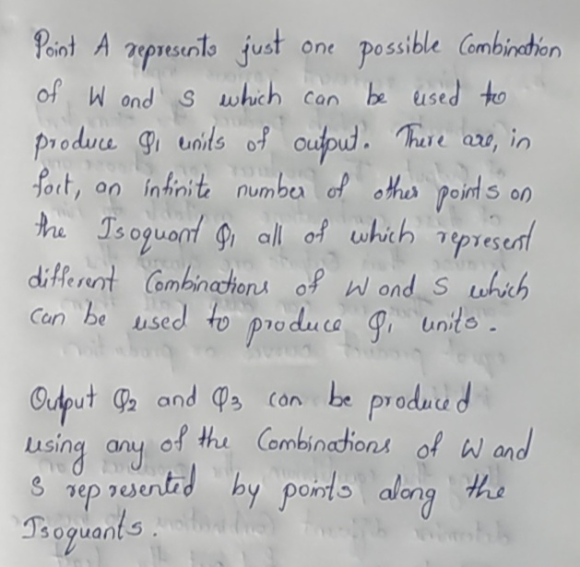 Point A represents just one possible Combination
of W and S which can be used to
produce Q₁ units of output. There are, in
fact, an infinite number of other points on
the Isoquant Q₁ all of which represent
different Combinations of W and S which
can be used to produce Q₁ units.
Output Q₂ and Q₃ can be produced
using any of the Combinations of W and
S represented by points along the
Isoquants.